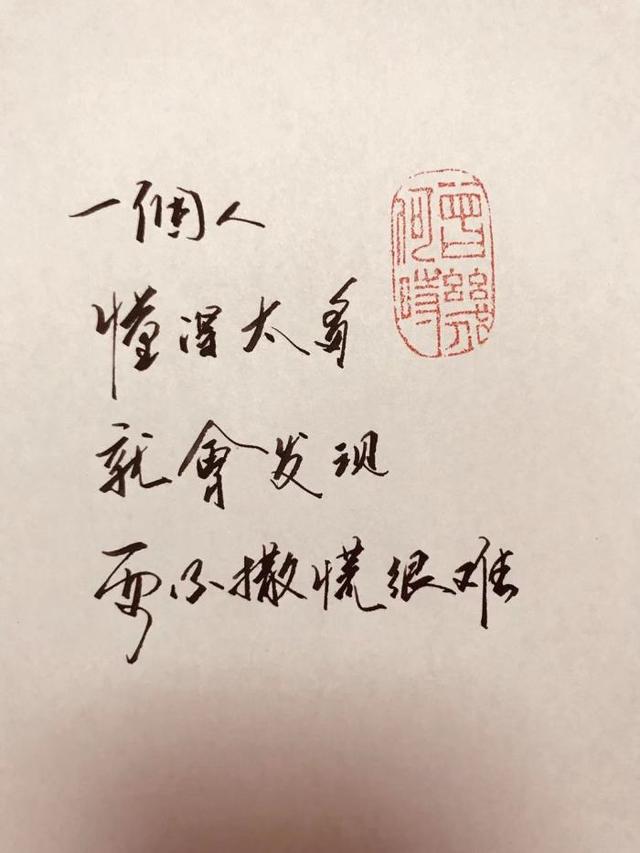 一個人
懂得太多
就會发现
要不撒慌很难
曾幾何時